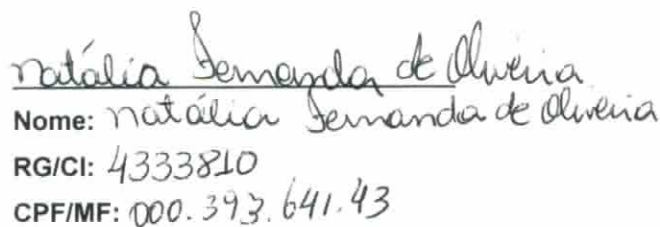 Natália Fernanda de Oliveira
Nome: Natália Fernanda de Oliveira
RG/CI: 4333810
CPF/MF: 000.393.641.43